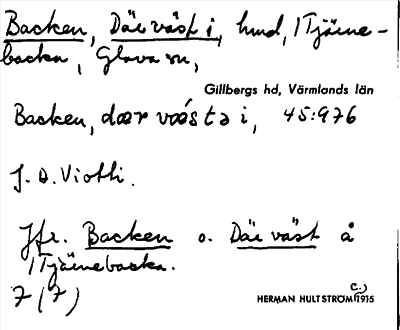 Backen, Där väst i, hmd, i Tjärne-
backa, Glava sn,
Gillbergs hd, Värmlands län
Backen, dær vǽsta i, 45:976
J. A. Viotti.
Jfr. Backen o. Där väst å
i Tjärnebacka.
7 (7)
HERMAN HULTSTRÖM (C.) 1915